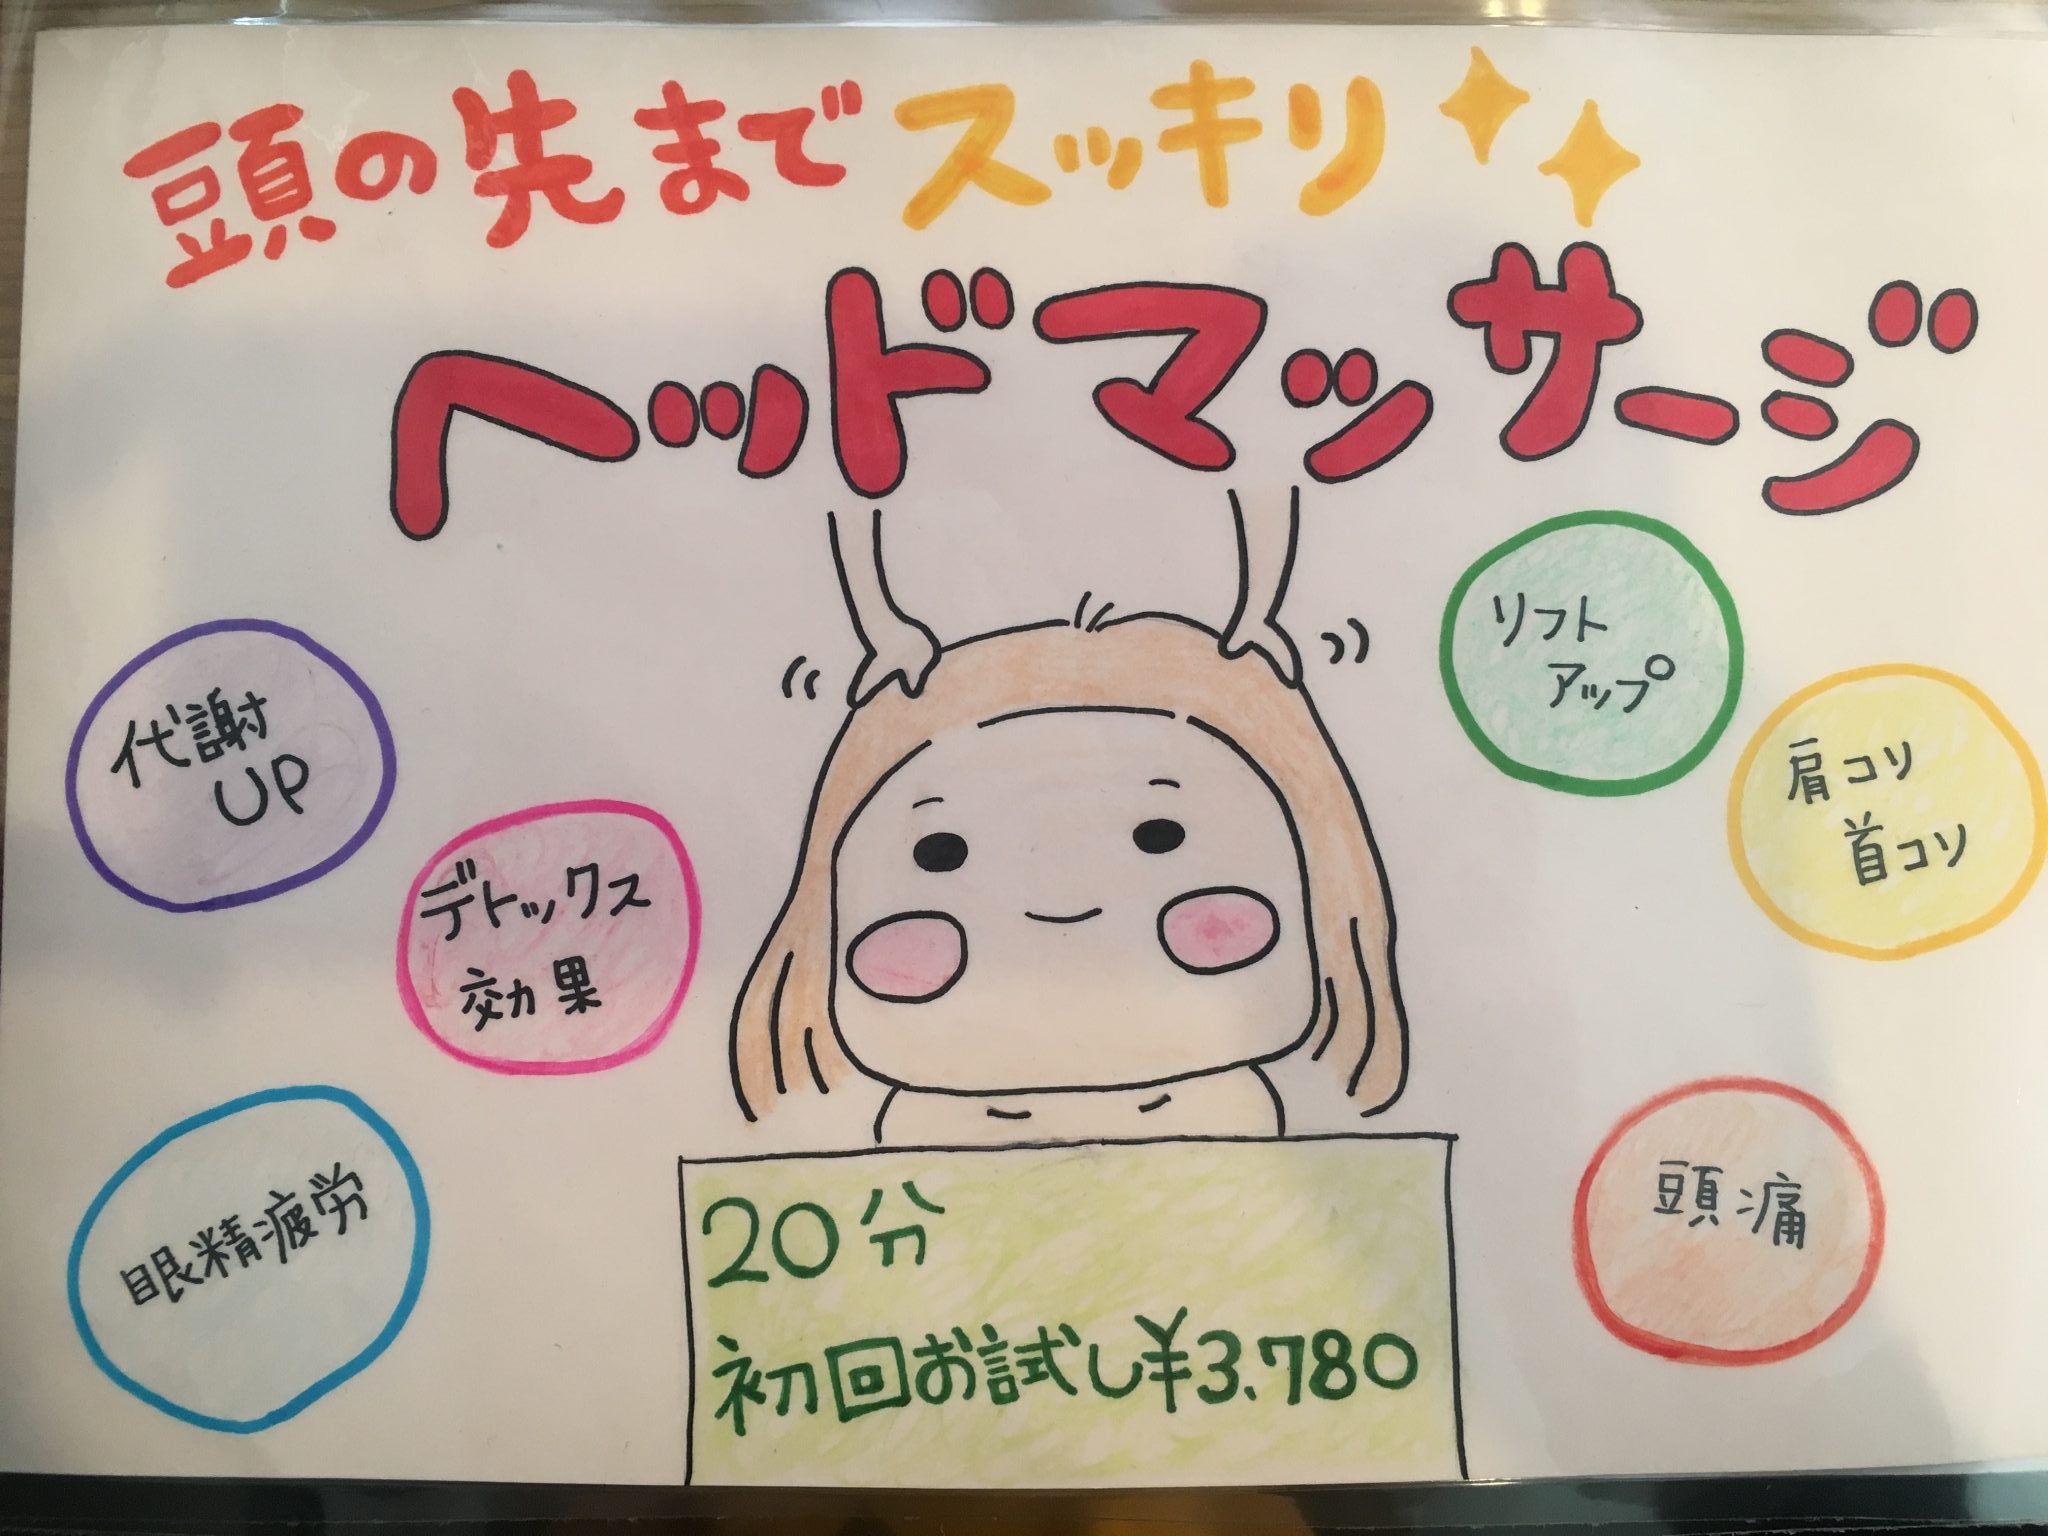 頭の先までスッキリ
ヘッドマッサージ
リフト
アップ
代謝
UP
肩コリ
首コリ
デトックス
効果
眼精疲労
頭痛
20分
初回お試し¥3.780